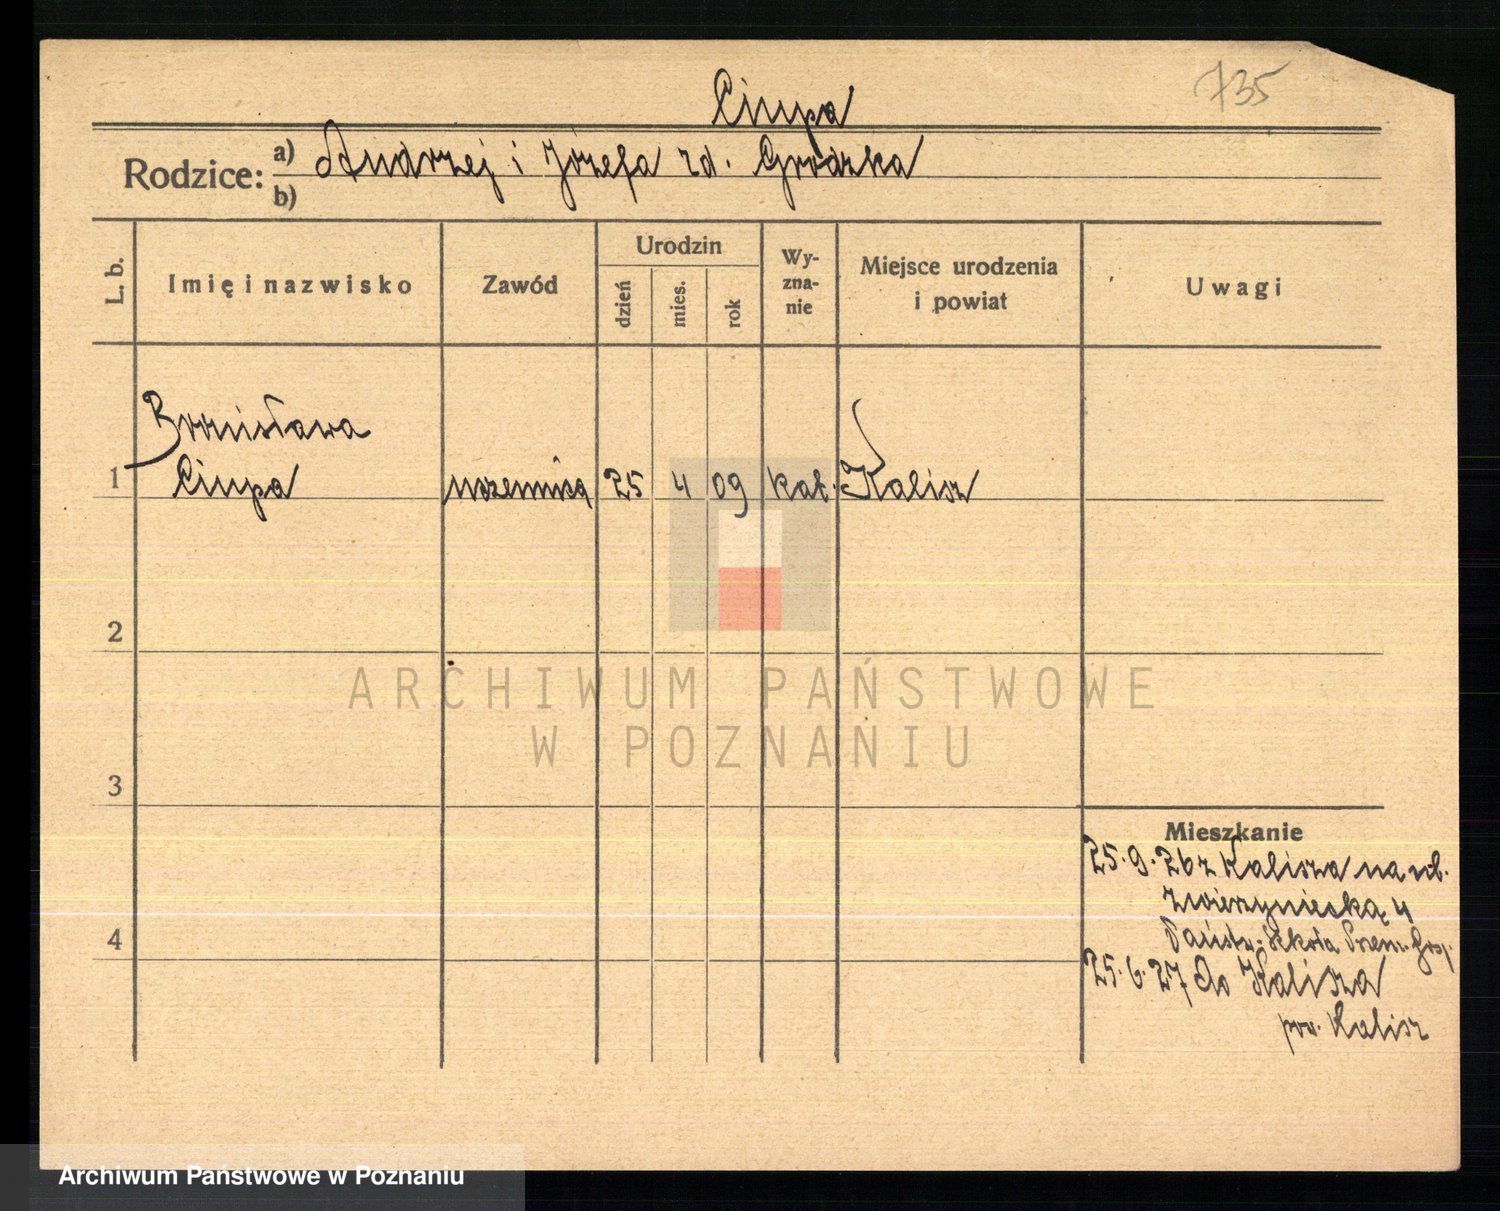 735
Ciupa
Rodzice: a) Andrzej i Józefa zd. Grodzka
b)
L. b.
Imię i nazwisko
Zawód
Urodzin
dzień
mies.
rok
Wy-
zna-
nie
Miejsce urodzenia
i powiat
Uwagi
Bronisława
1 Ciupa uczennica 25 4 09 kat. Kalisz
2
3
4
Mieszkanie
25.9.26 z Kalisza na ul.
Zwierzyniecką 4
Państw. Szkoła Przem. Gosp.
25.6.27 do Kalisza
pow. Kalisz
ARCHIWUM PAŃSTWOWE
W POZNANIU
Archiwum Państwowe w Poznaniu